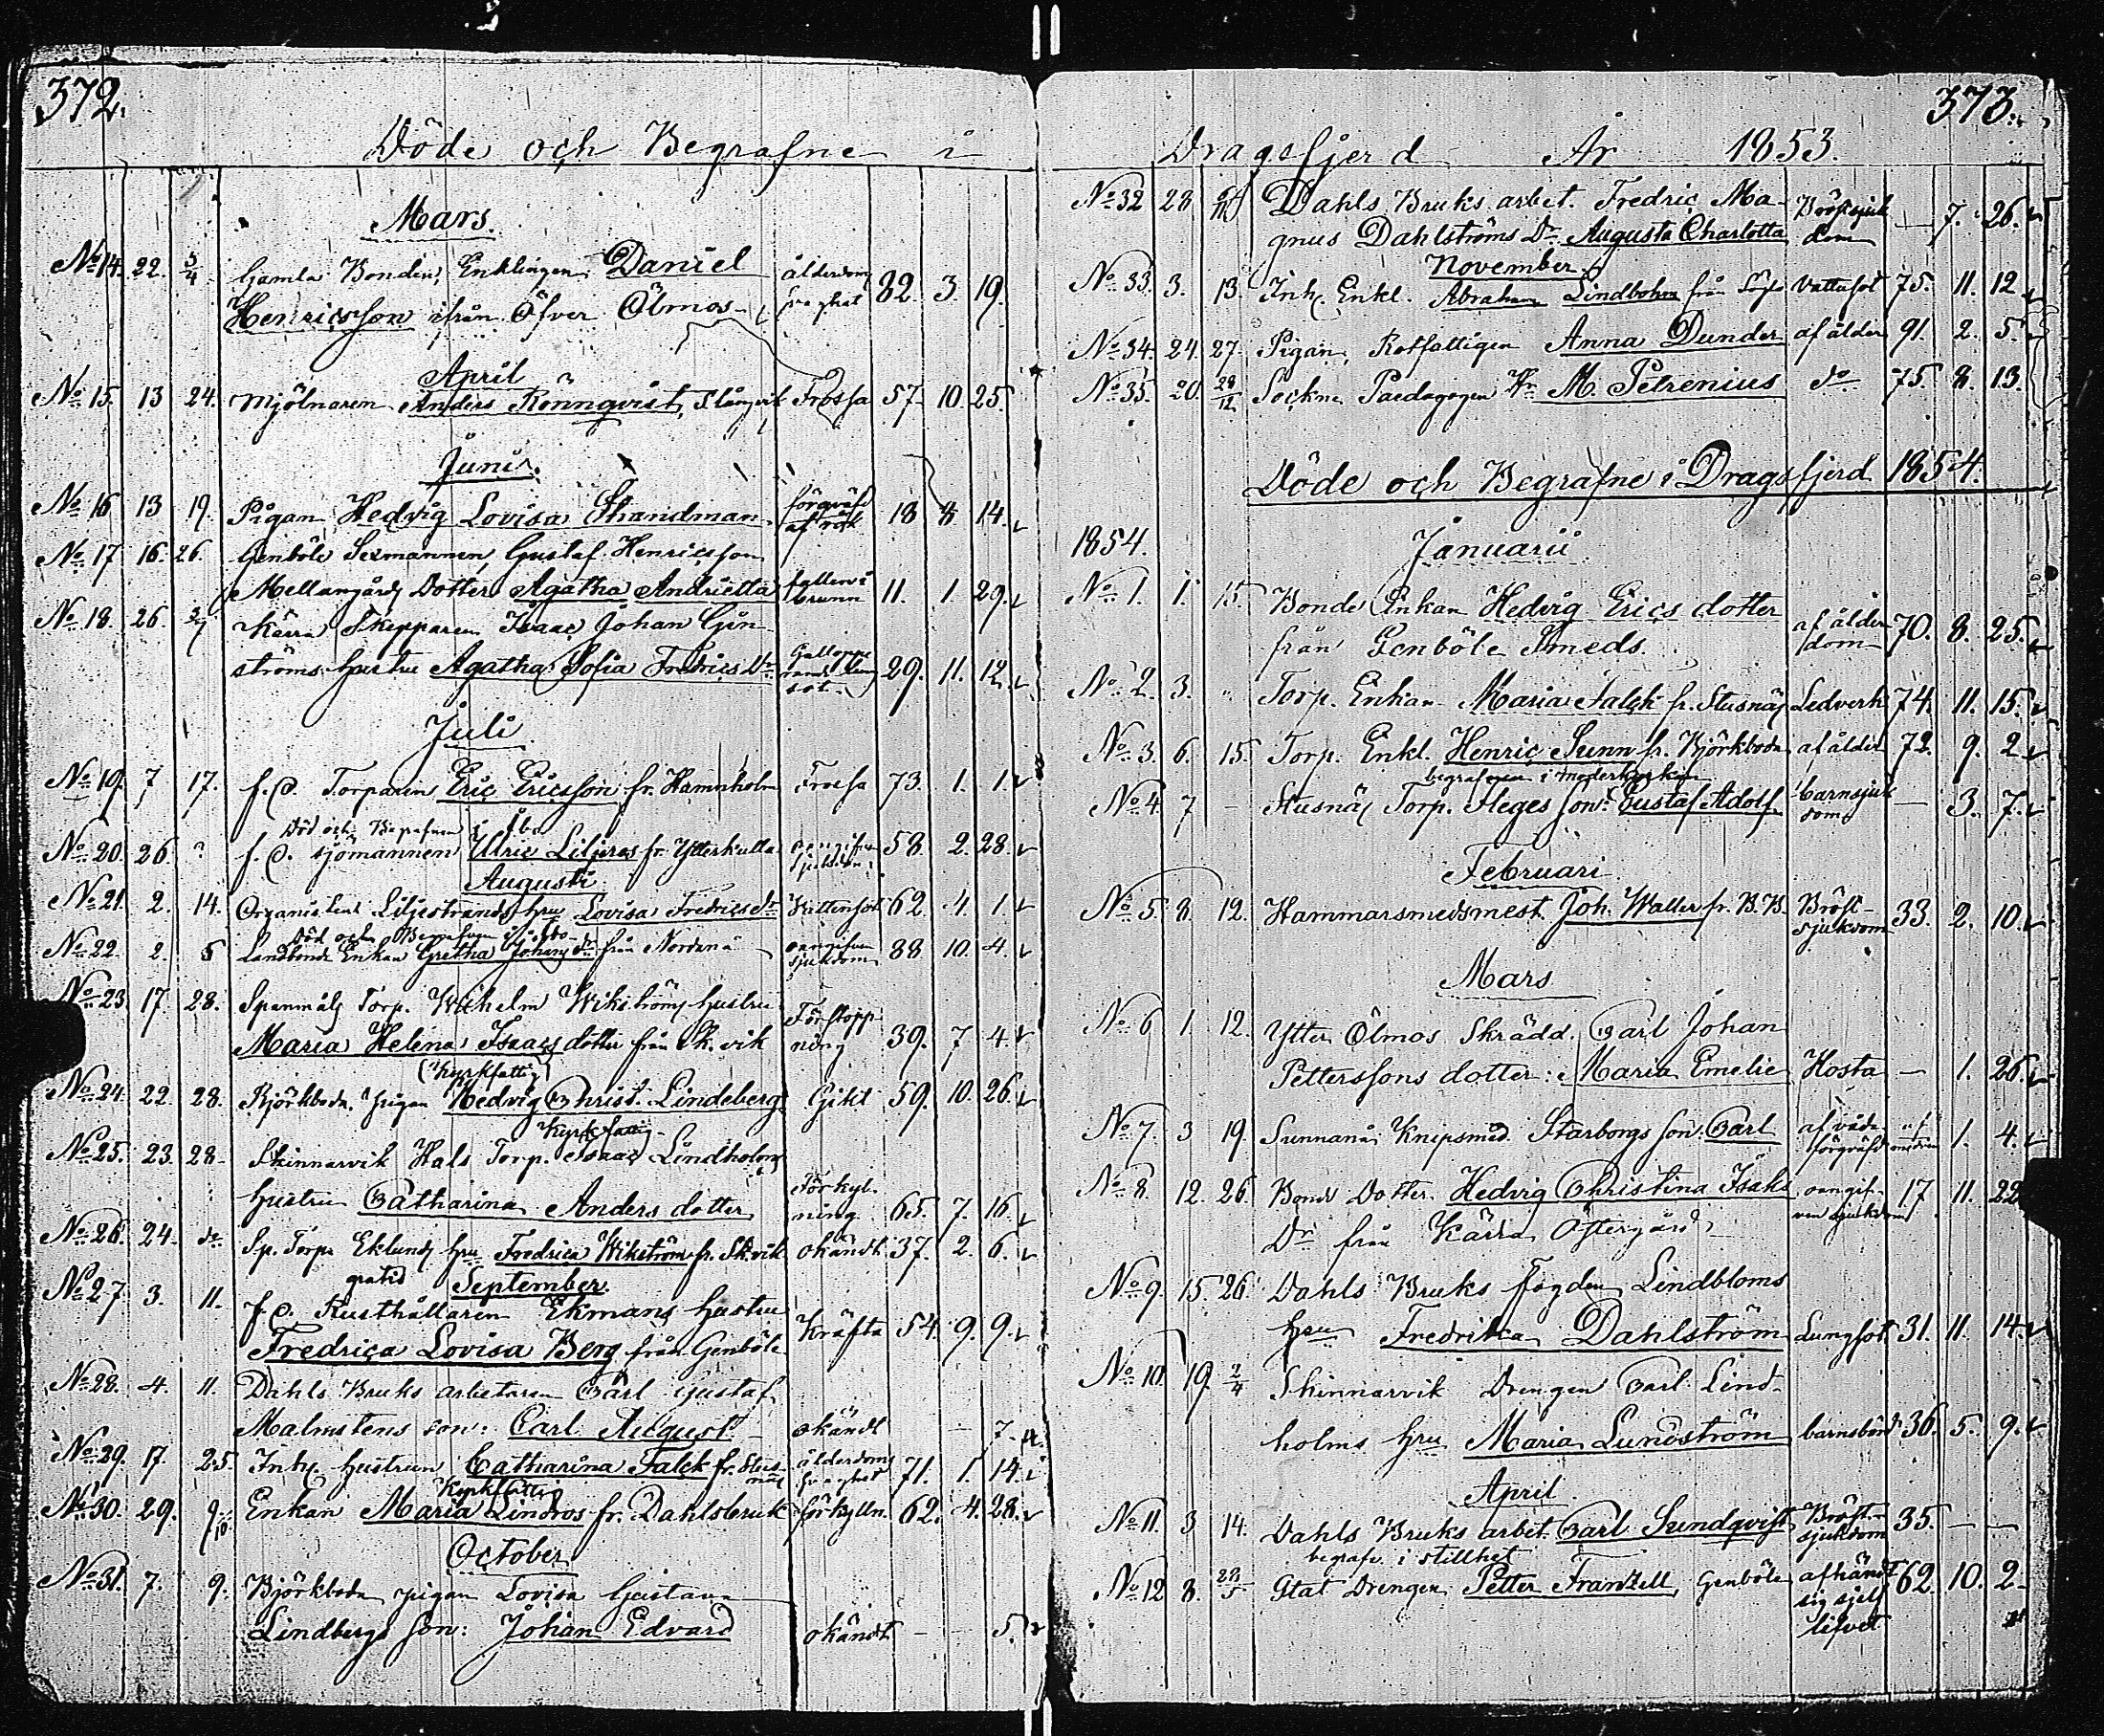 372.
Döde och Begrafne i
Mars.
No 14. 22. 3/4 Gamla Bonden, Enklingen Daniel ålderdoms
Henricsson ifrån Öfver Ölmos 82. 3. 19.
April
No 15. 13 24. Mjölnaren Anders Rönnqvist, Frossa 57. 10. 25.
Juni.
No 16 13 19. Pigan Hedvig Lovisa Strandman 18 8 14.
No 17 16. 26. Genböle Sexmannen, Gustaf Henricsson
Mellangårds Dotter Agatha Andrietta fallen i brunn 11. 1. 29.
No 18. 26 3/7 Kärra Skepparen Isaac Johan Gin-
ströms hustru Agatha Sofia Fredrics Dr. Galloppe rande lung sot 29. 11. 12.
Juli
No 19. 7 17. f. d. Torparen Eric Ericsson fr. Hamnholm Frossa 73. 1. 1.
Död och Begrafven i Åbo
No 20. 26. ? f. d. sjömannen Ulric Liljeros fr. Ytterkulla oangifven sjukdom 58. 2. 28.
Augusti
No 21. 2. 14. Organisten Liljestrands hru Lovisa Fredrics dr 62. 4. 1.
Död och Begrafven i Åbo
No 22. 2. 5 Landbonde Enkan Gretha Johans dr från Nordanå oangifven sjukdom 88. 10. 4.
No 23 17. 28. Spanmåls Torp. Wilhelm Wikströms hustru
Maria Helena Isaacs dotter från Sk. vik Förstopp ning 39. 7 4
(Kyrkfattig)
No 24. 22. 28. Björkboda Pigan Hedvig Christ. Lindeberg Gikt 59. 10. 26.
Kyrkfattig
No 25. 23. 28. Skinnarvik Hals Torp. Isaac Lindholms
hustru Catharina Anders dotter Förkyl- ning 65. 7. 16.
No 26. 24. do Sp. Torp. Eklunds hru Fredrica Wikström fr. Sk. vik okändt 37. 2. 6.
gratis September.
No 27 3. 11. f. d. Rusthållaren Ekmans hustru
Fredrica Lovisa Berg från Genböle Kräfta 54. 9. 9.
No 28. 4. 11. Dahls Bruks arbetaren Carl Gustaf
Malmstens son: Carl August okändt – 7.
No 29. 17. 25. Inhy. hustrun Catharina Falck fr. Stus- näs ålderdoms 71. 1. 14.
Kyrkfattig
No 30. 29. 9/10 Enkan Maria Lindros fr. Dahlsbruk förkyln. 62. 4. 28.
October
No 31. 7. 9. Björkboda pigan Lovisa Gustava
Lindbergs son: Johan Edvard okändt – – 5.
373.
Dragsfjerd År 1853.
No 32 28 6/11 Dahls Bruks arbet. Fredric Ma-
gnus Dahlströms Dr. Augusta Charlotta Bröstsjuk dom – 7. 26.
November
No 33. 3. 13. Inh. Enkl. Abraham Lindbohm från Vattusot 75. 11. 12
No 34. 24. 27. Pigan, Rotfattigen Anna Dunder af ålder 91. 2. 5.
No 35. 20. 28/12 Sockne Paedagogen Hr M. Petrenius do 75. 8. 13.
Döde och Begrafne i Dragsfjerd 1854.
1854. Januarii
No 1. 1. 15. Bonde Enkan Hedvig Erics dotter
från Genböle Smeds. af ålder dom 70. 8. 25.
No 2. 3. " Torp. Enkan Maria Falck fr. Stusnäs Ledverk 74. 11. 15.
No 3. 6. 15. Torp. Enkl. Henric Sunn fr. Björkboda af ålder 72. 9. 2
begrafven i moderkyrkan
No 4. 7 – Stusnäs Torp. Heges son: Gustaf Adolf barnsjuk dom – 3. 7.
Februari
No 5. 8. 12. Hammarsmedsmest. Joh. Waller fr. B. B. Bröst- sjukdom 33. 2. 10.
Mars
No 6 1 12. Ytter Ölmos Skrädd. Carl Johan
Petterssons dotter: Maria Emelie Hosta – 1. 26.
No 7. 3 19. Sunnanå Knipsmed. Starborgs son: Carl af våda förqväfd af modren 1. 4.
No 8. 12. 26. Bonde Dotter Hedvig Christina Isaks oangif- ven sjukdom 17 11. 22
Dr från Kärra Östergård
No 9. 15. 26. Dahls Bruks fogden Lindbloms
hru Fredrika Dahlström Lungsot 31. 11. 14.
No 10. 19. 2/4 Skinnarvik Drengen Carl Lind-
holms hru Maria Lundström barnsbörd 36. 5. 9.
April
No 11. 3 14. Dahls Bruks arbet. Carl Sundqvist Bröst- sjukdom 35. – –
begrafv. i stillhet
No 12 8. 28/5 Stat Drengen Petter Franzell, Genböle afhändt sig sjelf lifvet 62. 10. 2.